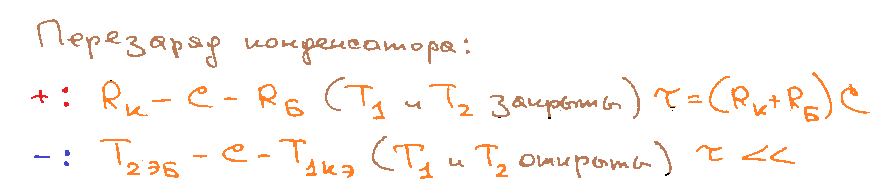 Перезаряд конденсатора:
+: Rк - C - RБ (T1 и T2 закрыты) τ=(Rк+RБ)C
-: T2ЭБ - C - T1КЭ (T1 и T2 открыты) τ <<